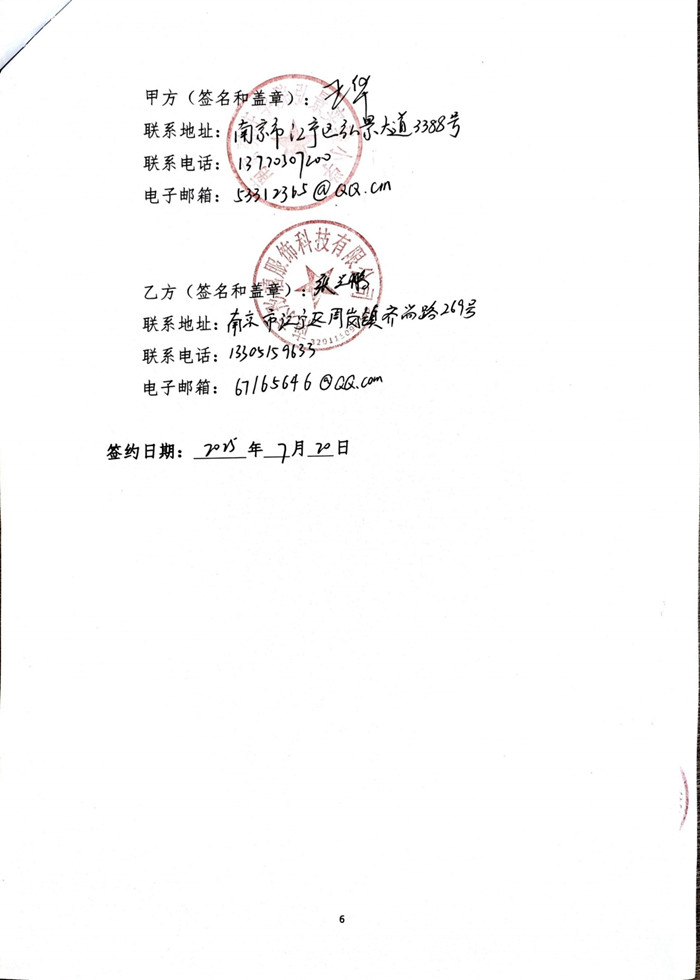 甲方（签名和盖章）：王华
联系地址：南京市江宁区弘景大道3388号
联系电话：13770307200
电子邮箱：53312365@QQ.cm
服饰科技有限公司
乙方（签名和盖章）：
联系地址：南京市江宁区周岗镇齐尚路269号
联系电话：13305159633
电子邮箱：67165646@QQ.com
签约日期：2025年7月20日
6